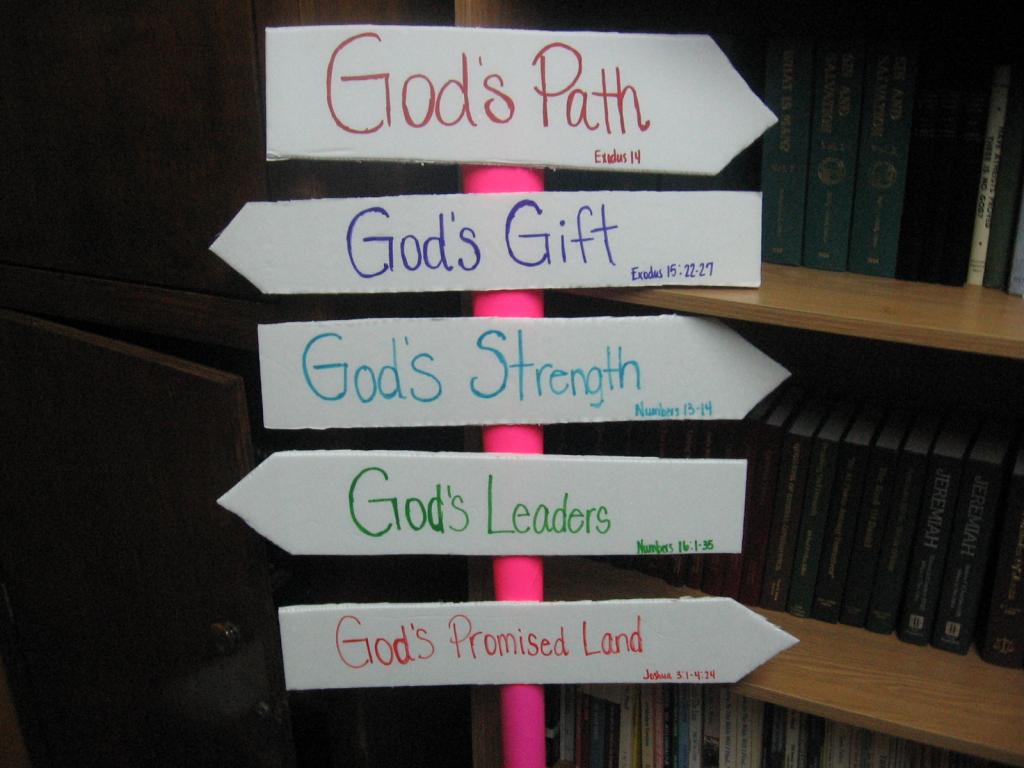 God's Path
Exodus 14
God's Gift
Exodus 15:22-27
God's Strength
Numbers 13-14
God's Leaders
Numbers 16:1-35
God's Promised Land
Joshua 3:1-4:24
WHAT IS MAN?
SIN AND SALVATION
SIN AND SALVATION
JEREMIAH
JEREMIAH